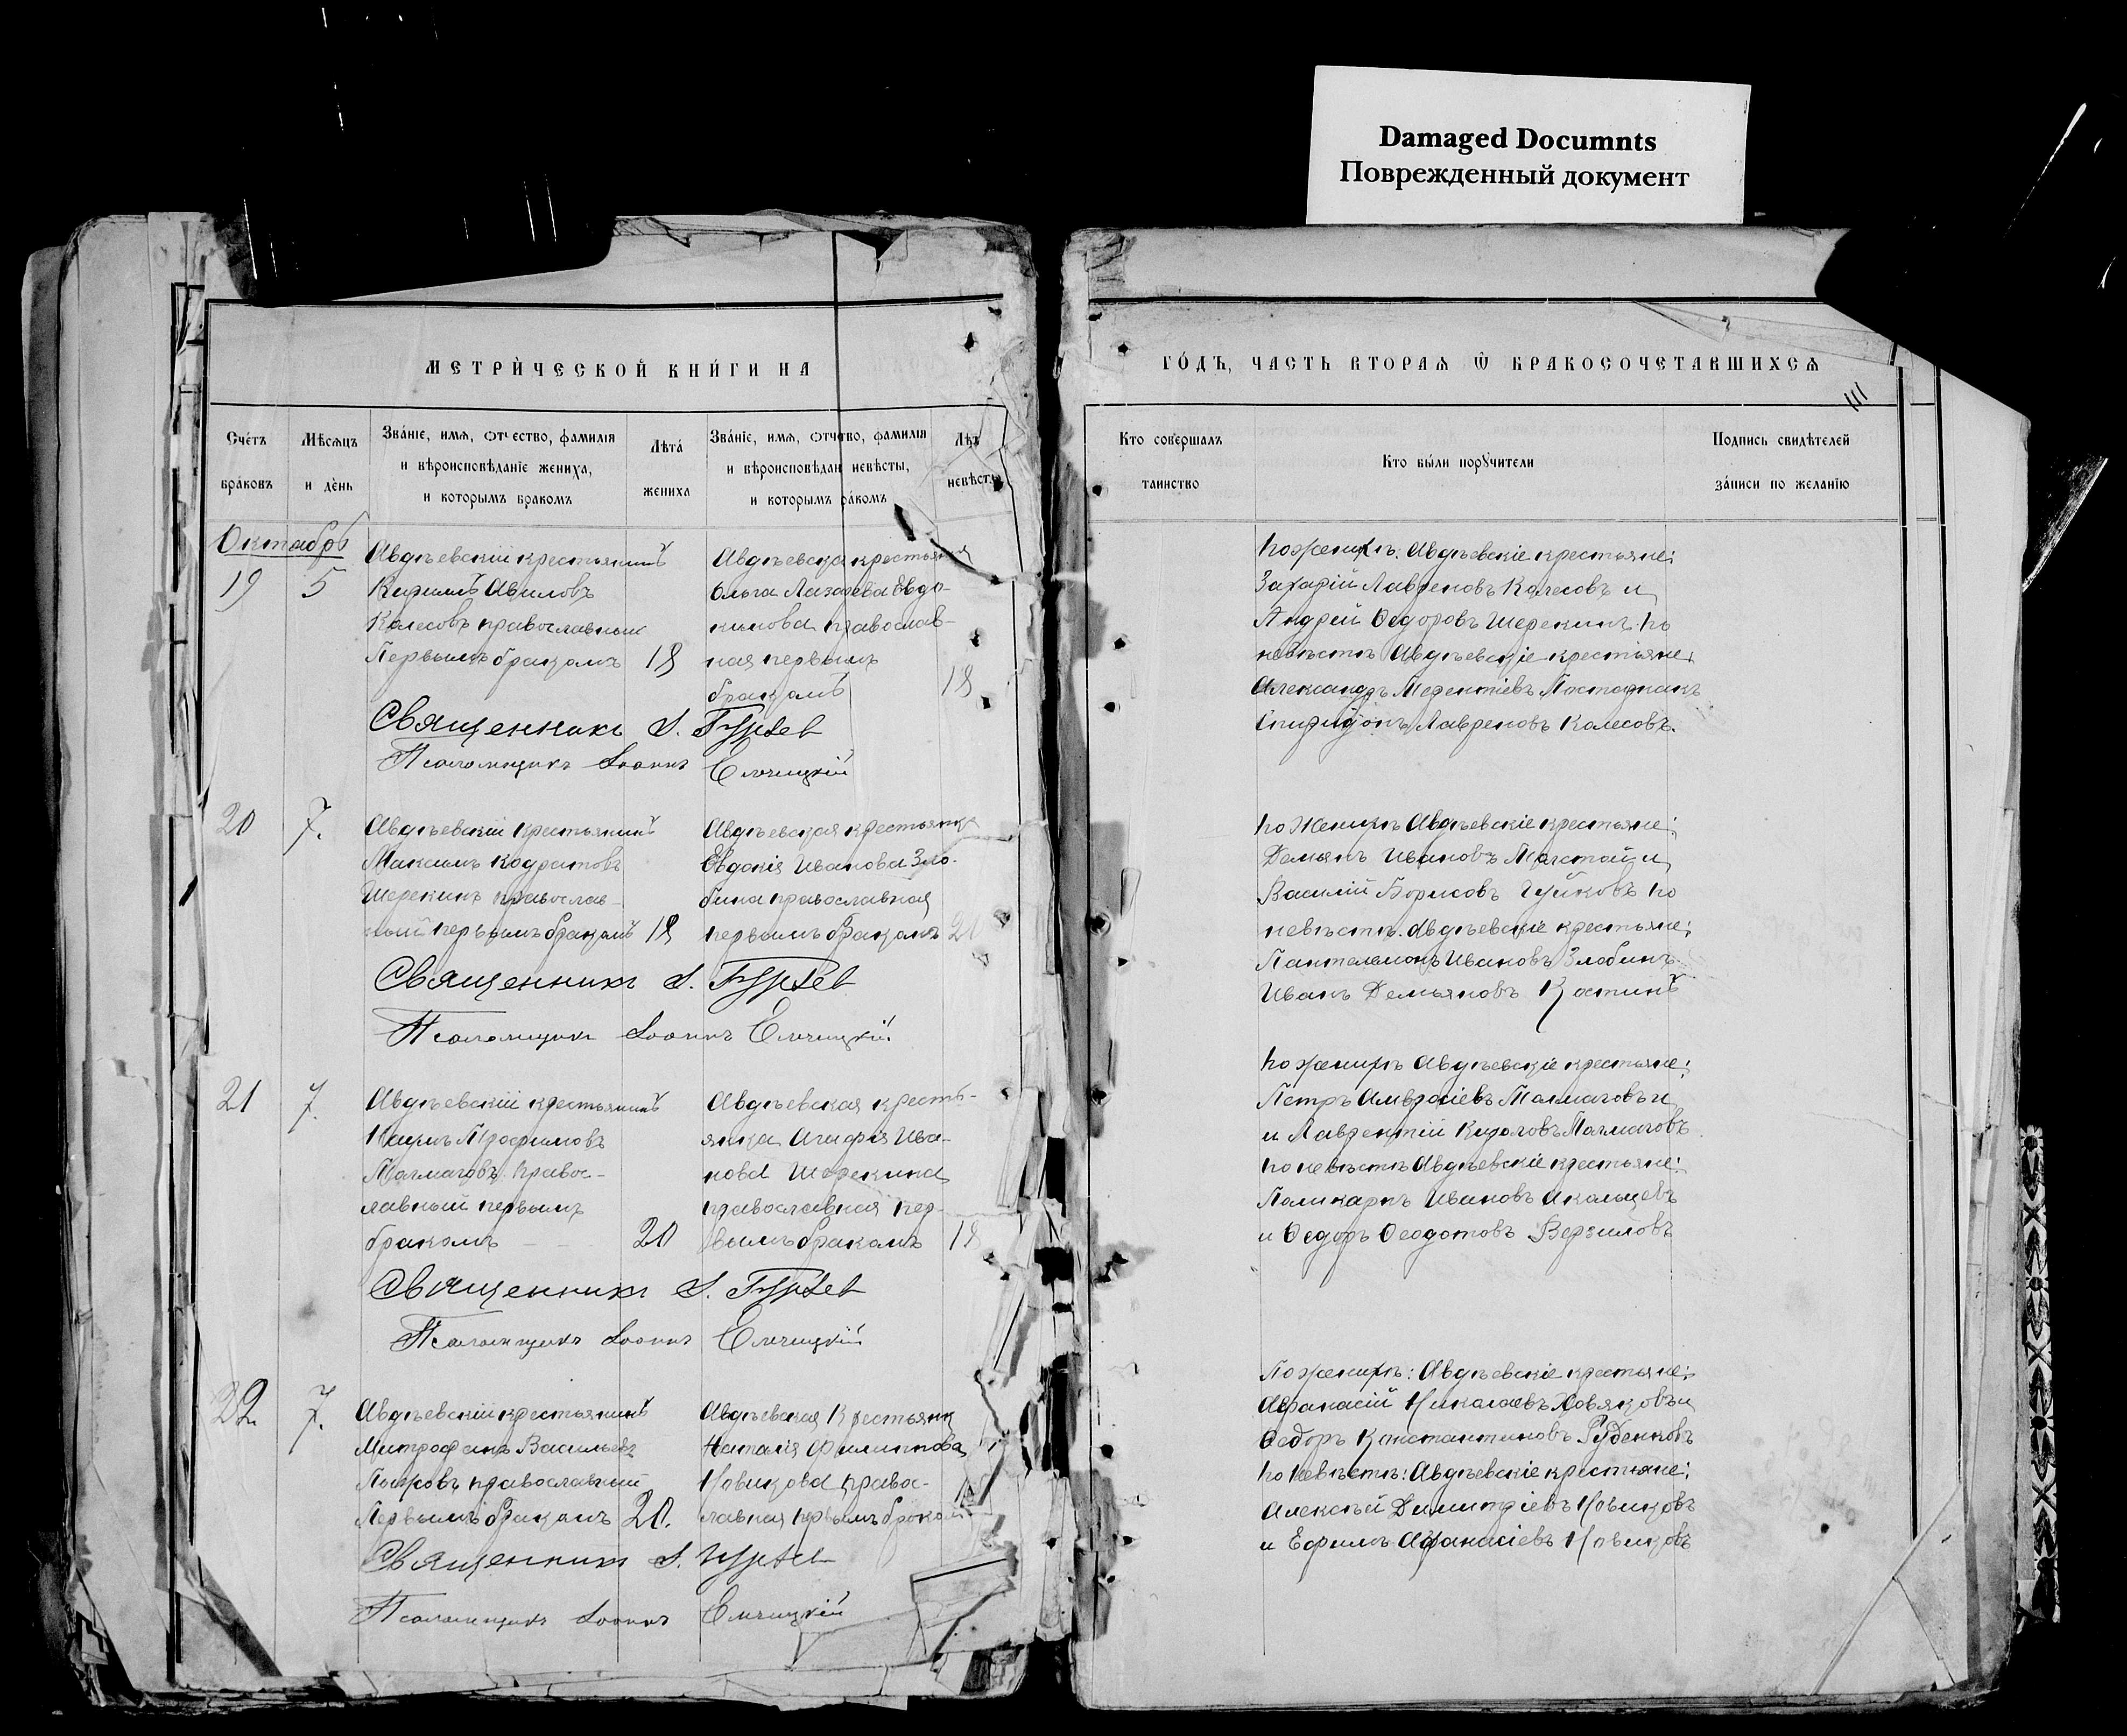 Damaged Documnts
Поврежденный документ
МЕТРИ́ЧЕСКОЙ КНИ́ГИ НА
ГО́ДЪ, ЧАСТЬ ВТОРАѦ Ѡ҆ БРАКОСОЧЕТАВШИХСѦ
111
Сче́тъ бра́ковъ
Мѣсѧцъ и де́нь
Зва́нїе, имѧ, ѻтчество, фамилїѧ и вѣроисповѣданїе жениха, и которымъ бракомъ
Лѣта́ жениха
Зва́нїе, имѧ, ѻтчтво, фамилїѧ и вѣроисповѣдан невѣсты, и которымъ ра́комъ
Лѣт невѣсты
Кто соверша́лъ таинство
Кто бы́ли порꙋчители
Подпись свидѣтелей за́писи по желанїю
Октябрь
19 5
Авдѣевскій крестьянинъ
Кириллъ Авиловъ
Колесовъ православный
Первымъ бракомъ 18
Авдѣевская крестьянка
Ольга Лазарева Евдо-
кимова православ-
ная первымъ
бракомъ 18
Священникъ І. Гурьев
Псаломщикъ Іоаннъ Елчицкій
По женихѣ: Авдѣевскіе крестьяне:
Захарій Лавреновъ Колесовъ и
Андрей Ѳедоровъ Шерекинъ по
невѣстѣ Авдѣевскіе крестьяне:
Александръ Терентіевъ
Спиридонъ Лавреновъ Колесовъ.
20 7.
Авдѣевскій крестьянинъ
Максимъ Кодратовъ
Шерекинъ православ-
ный первымъ бракомъ 18
Авдѣевская крестьянка
Евдокія Иванова Зло-
бина православная
первымъ бракомъ 21
Священникъ І. Гурьев
Псаломщикъ Іоаннъ Елчицкій
По женихѣ Авдѣевскіе крестьяне:
Демьянъ Ивановъ Толстой и
Василій Борисовъ Чуйковъ по
невѣстѣ. Авдѣевскіе крестьяне:
Пантелемонъ Ивановъ Злобинъ
Иванъ Демьяновъ Костинъ
21 7.
Авдѣевскій крестьянинъ
Наумъ Трофимовъ
Толмачовъ Правос-
лавный первымъ
бракомъ 20
Авдѣевская кресть-
янка Агафія Ива-
нова Шерекина
православная пер-
вымъ бракомъ 18
Священникъ І. Гурьев
Псаломщикъ Іоаннъ Елчицкій
По женихѣ Авдѣевскіе крестьяне:
Петръ Амвросіевъ Толмачовъ и
и Лаврентій Кириловъ Толмачовъ
по невѣстѣ Авдѣевскіе крестьяне:
Поликарпъ Ивановъ
и Ѳедоръ Ѳеодотовъ Верзиловъ
22. 7.
Авдѣевскій крестьянинъ
Митрофанъ Васильевъ
православный
Первымъ бракомъ 20.
Авдѣевская Крестьянк
Наталія Филиппова
Новикова правос-
лавная первымъ браком
Священникъ І. Гурьев
Псаломщикъ Іоаннъ Елчицкій
По женихѣ: Авдѣевскіе крестьяне:
Афанасій Николаевъ Ховяковъ и
Ѳедоръ Константиновъ Рубенковъ
По невѣстѣ: Авдѣевскіе крестьяне:
Алексѣй Димитріевъ Новиковъ
и Ефимъ Афанасіевъ Новиковъ